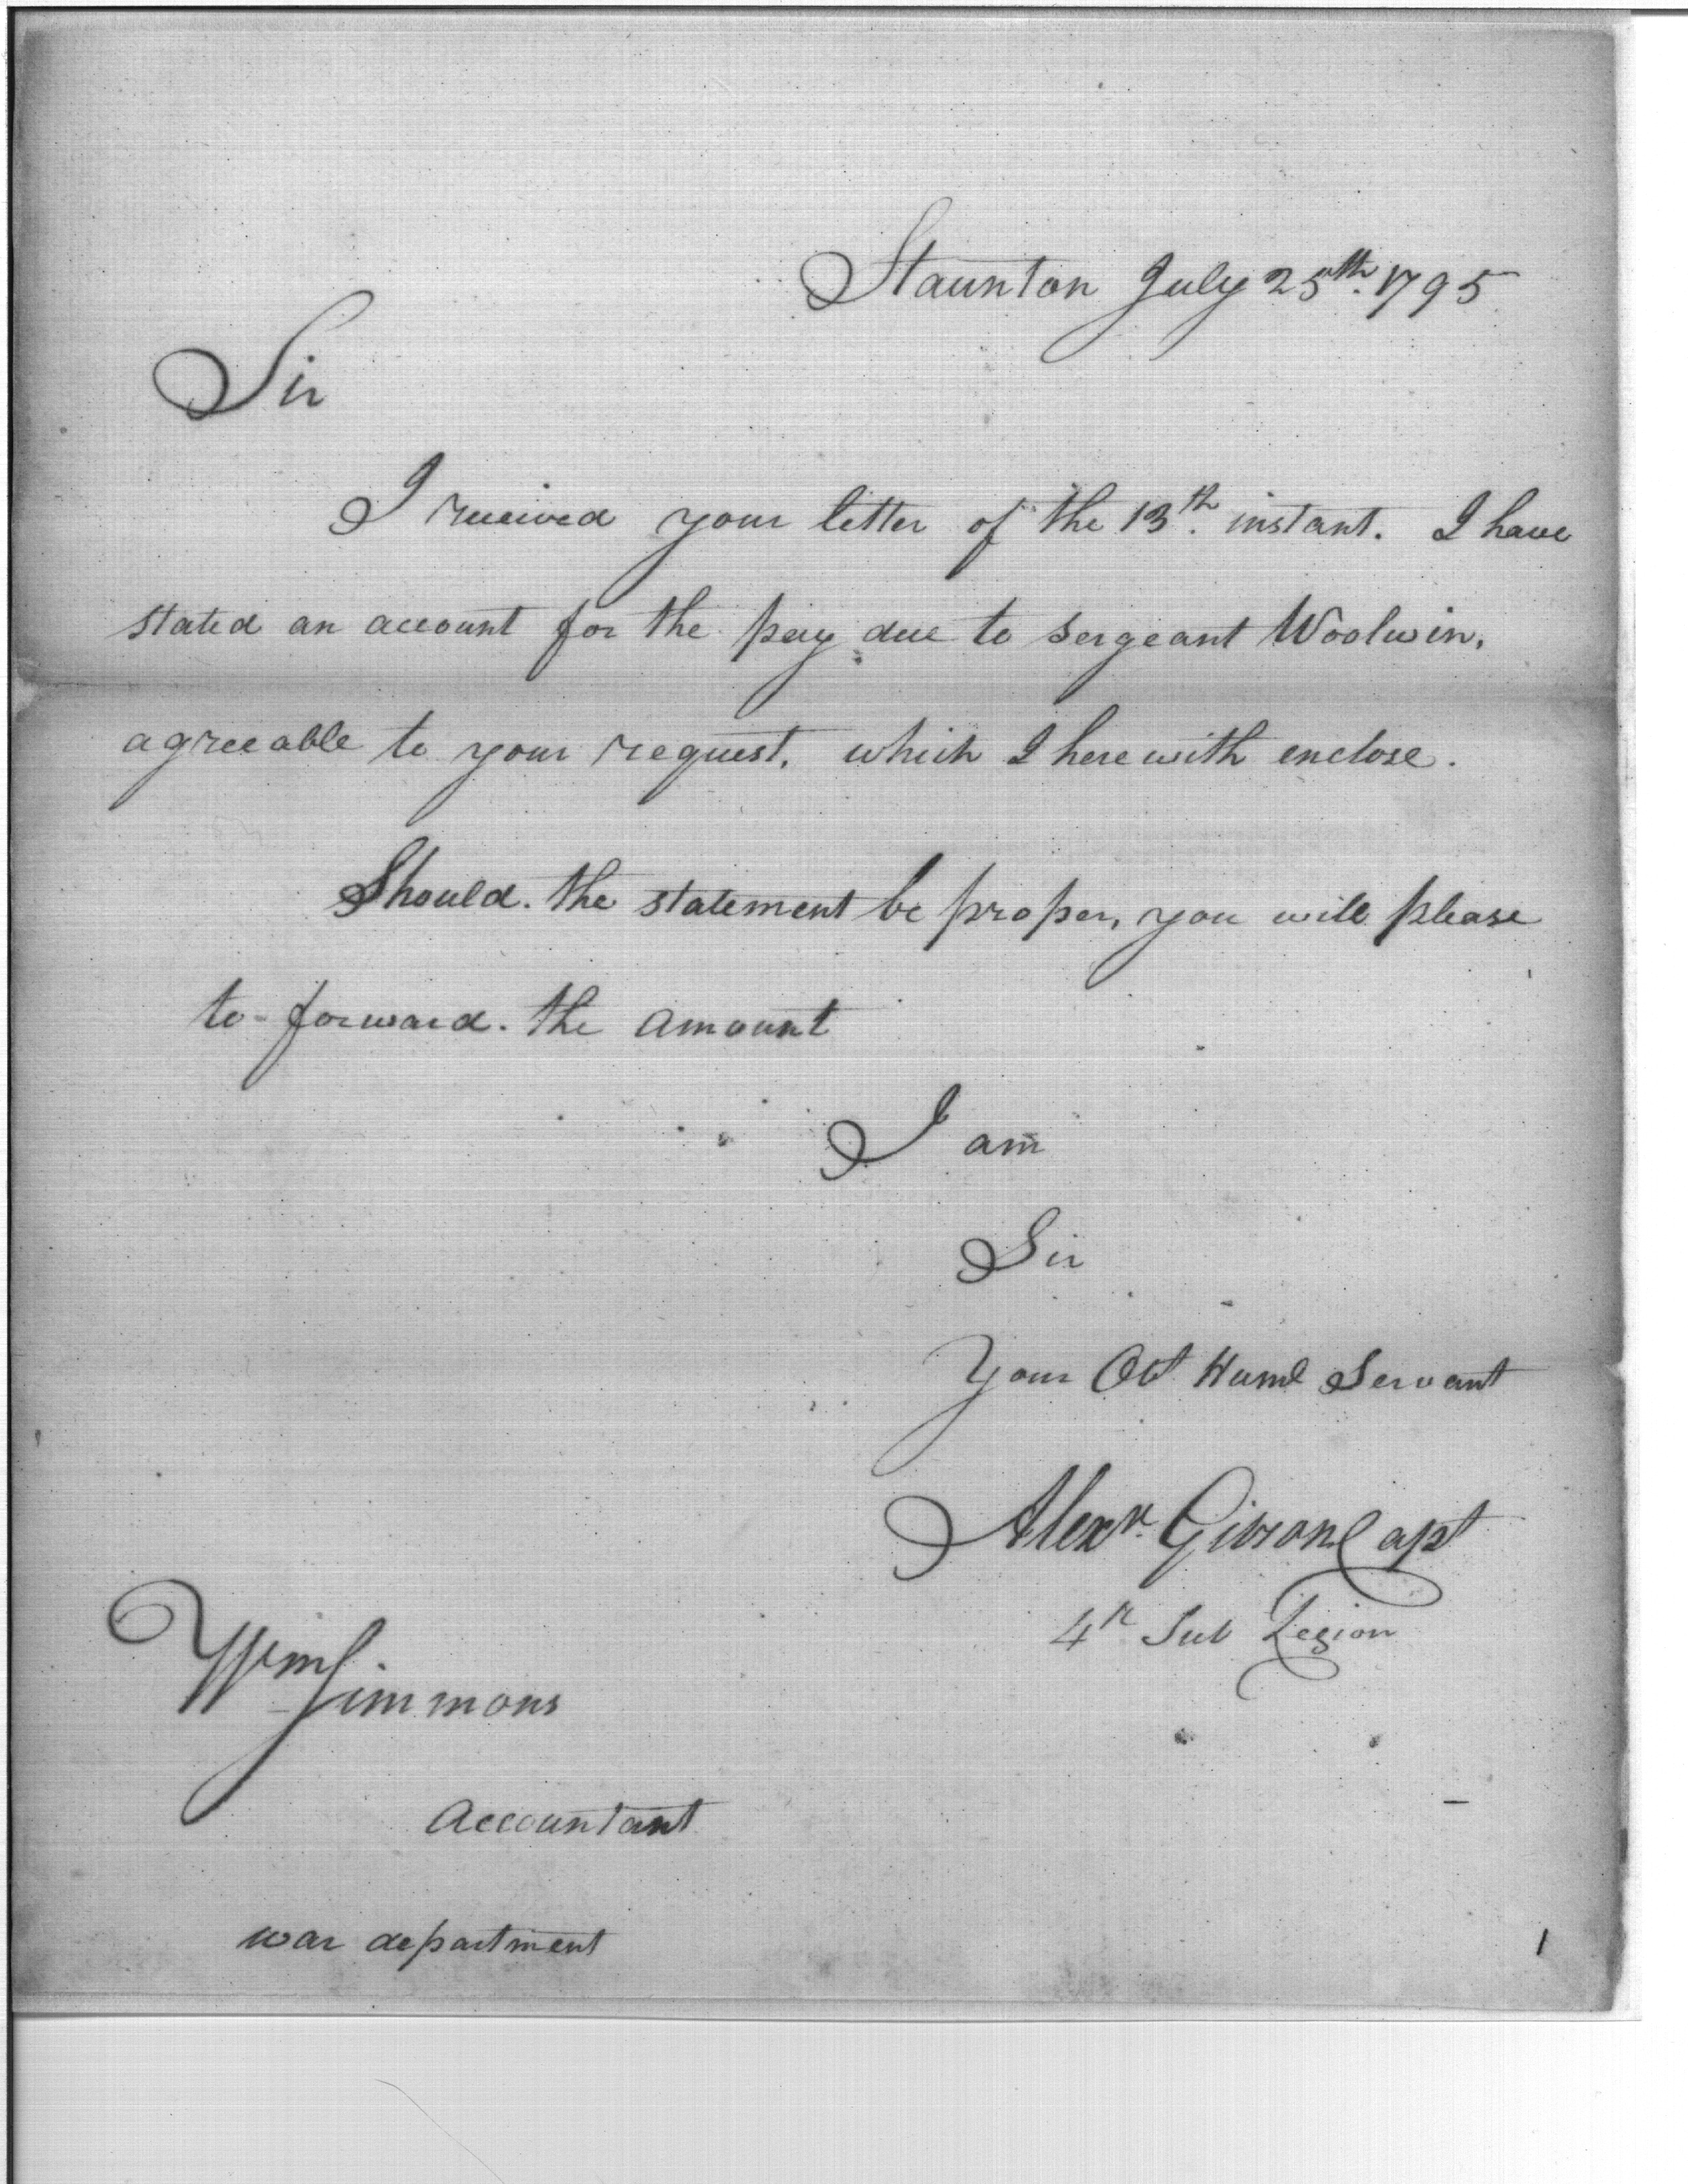 Staunton July 25th. 1795
Sir
I received your letter of the 13th. instant. I have
stated an account for the pay due to sergeant Woolwin,
agreeable to your request, which I herewith enclose.
Should the statement be proper, you will please
to forward the amount
I am
Sir
Your Obt Huml Servant
Alexr. Gibson Capt
4th Sub Legion
Wm Simmons
Accountant
war department
1